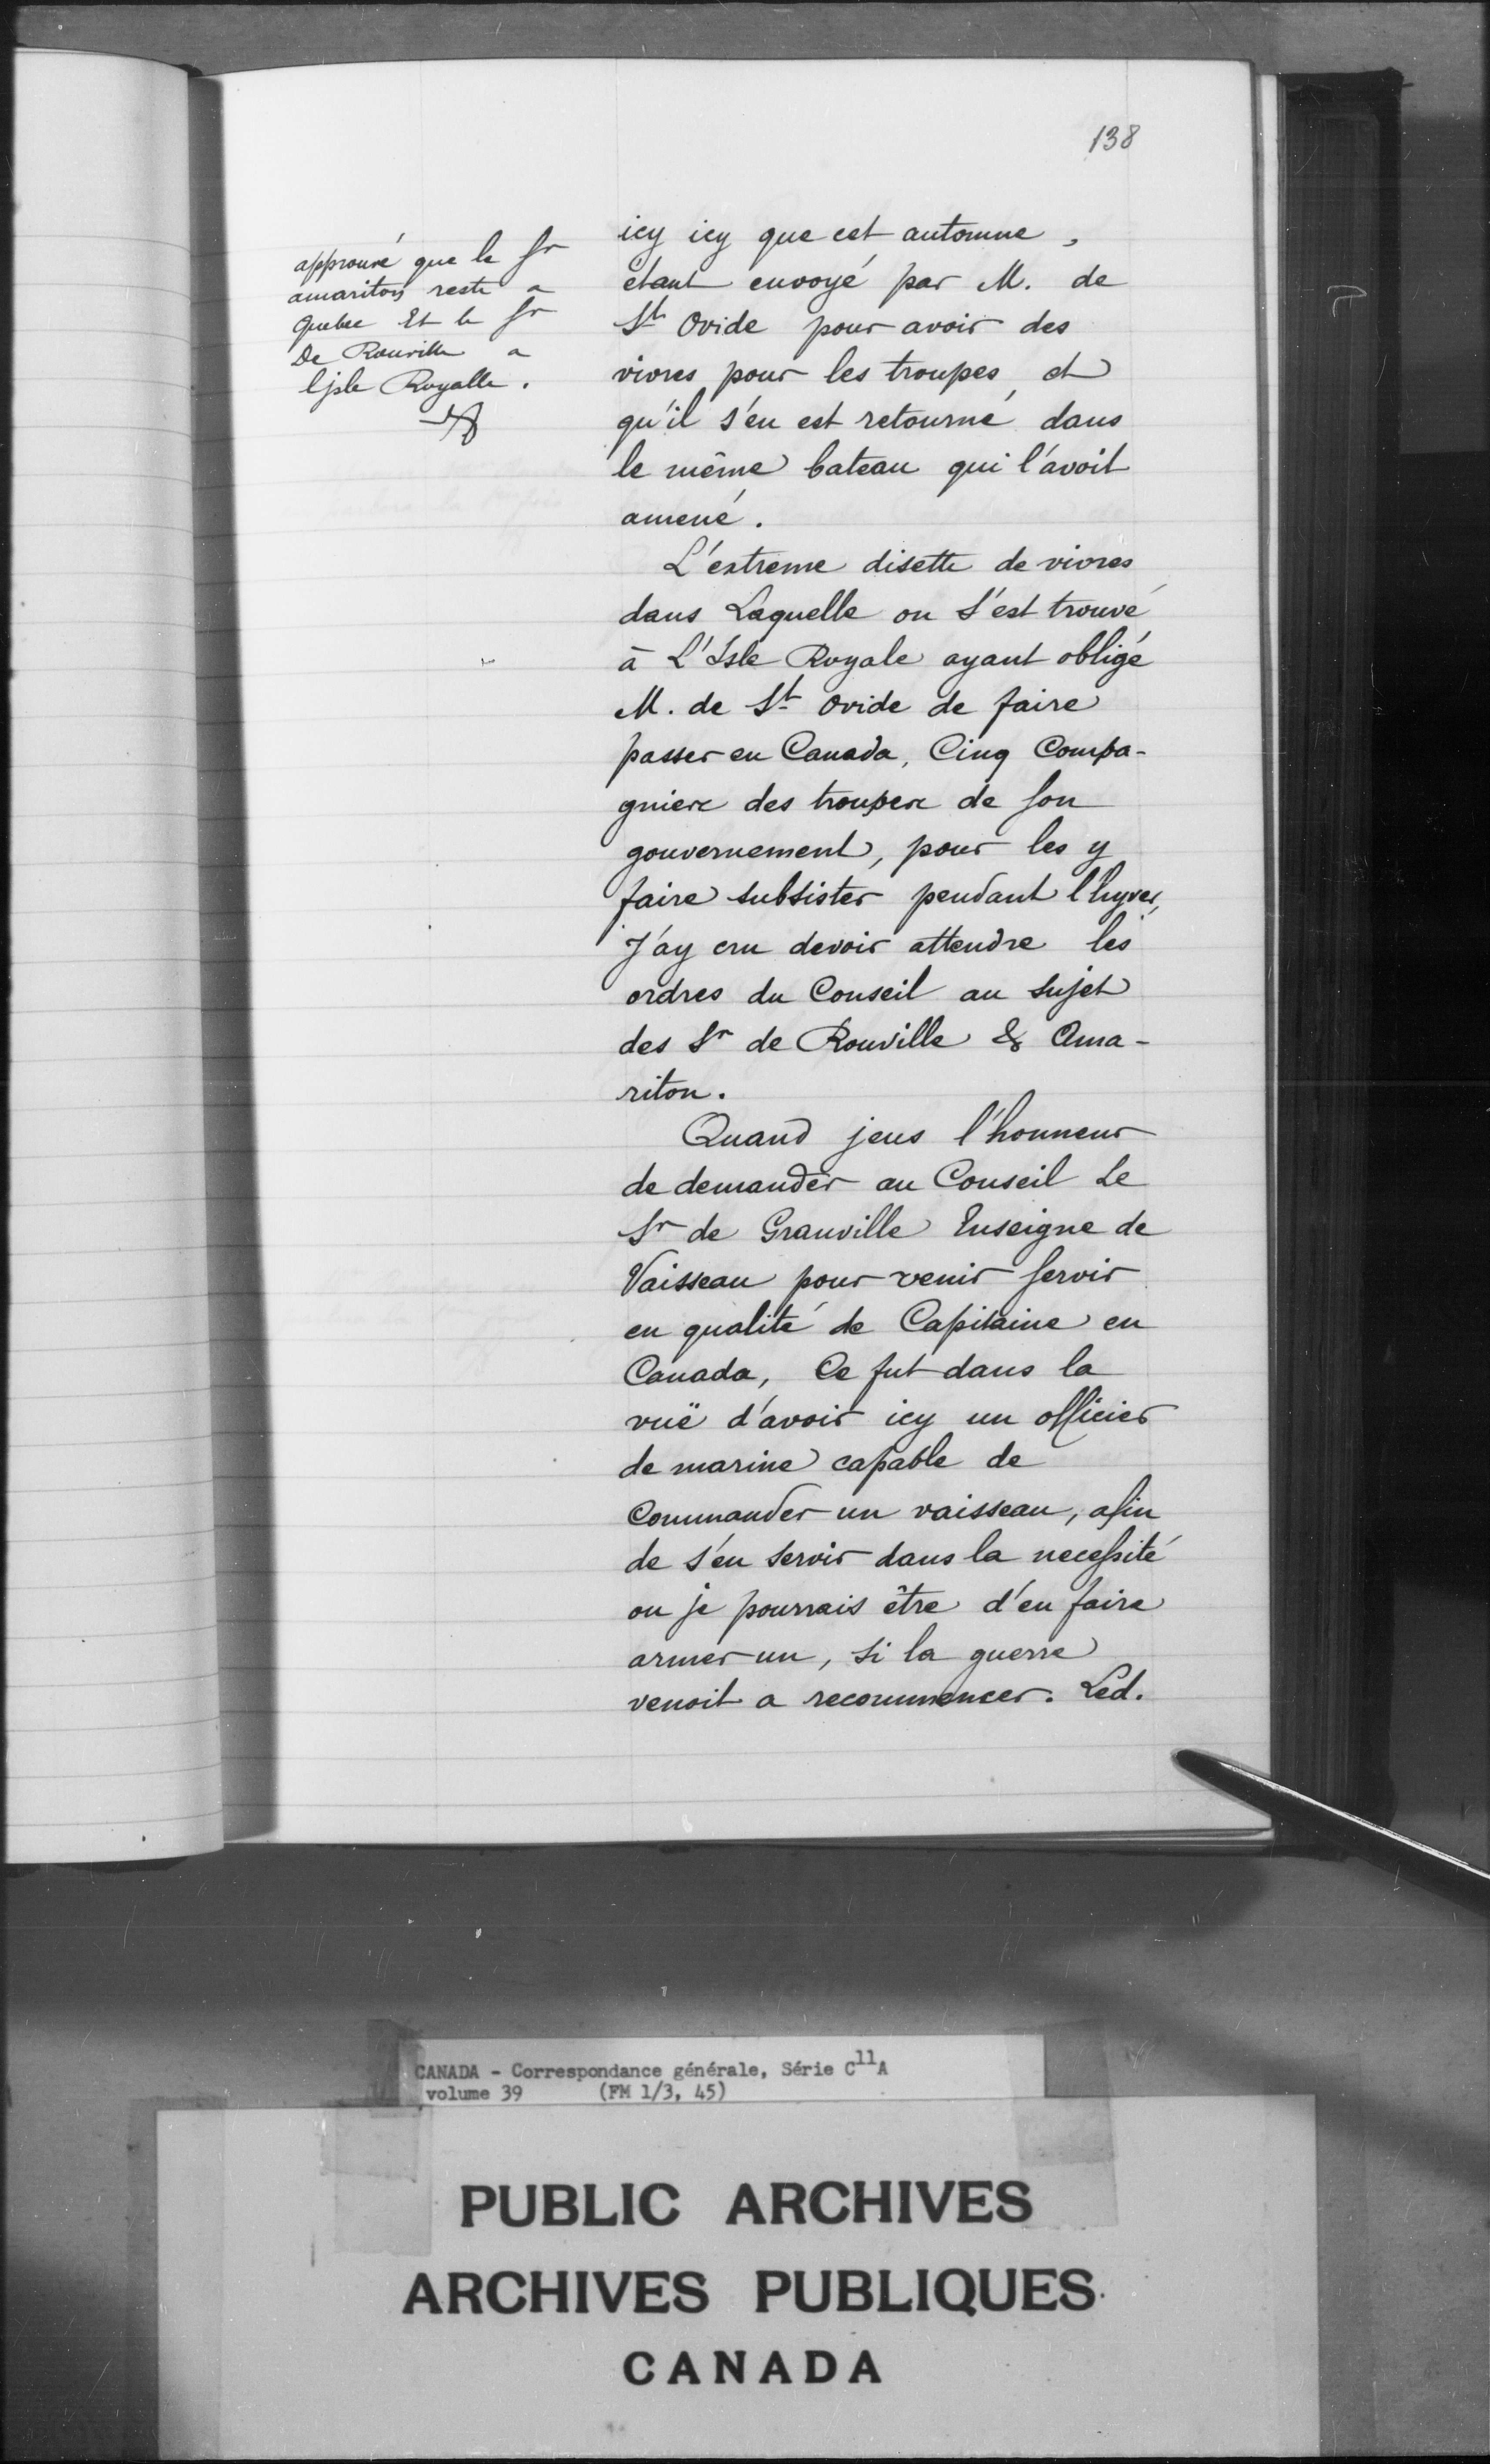 138
approuvé que le Sr
amariton reste a
Quebec Et le Sr
De Rouville a
lisle Royalle.
icy icy que cet automne,
étant envoyé par M. de
St Ovide pour avoir des
vivres pour les troupes et
qu'il s'en est retourné dans
le même bateau qui l'avoit
amené.
L'extreme disette de vivres
dans Laquelle on s'est trouvé
à L'Isle Royale ayant obligé
M. de St Ovide de faire
passer en Canada, Cinq Compa-
gnies des troupes de son
gouvernement, pour les y
faire subsister pendant l'hyver,
J'ay cru devoir attendre les
ordres du Conseil au sujet
des Sr de Rouville & Ama-
riton.
Quand jeus l'honneur
de demander au Conseil Le
Sr de Granville Enseigne de
Vaisseau pour venir servir
en qualité de Capitaine en
Canada, Ce fut dans la
vuë d'avoir icy un officier
de marine capable de
Commander un vaisseau, afin
de s'en servir dans la necessité
ou je pourrais être d'en faire
armer un, si la guerre
venoit a recommencer. Led.
CANADA - Correspondance générale, Série C11A
volume 39 (FM 1/3, 45)
PUBLIC ARCHIVES
ARCHIVES PUBLIQUES
CANADA